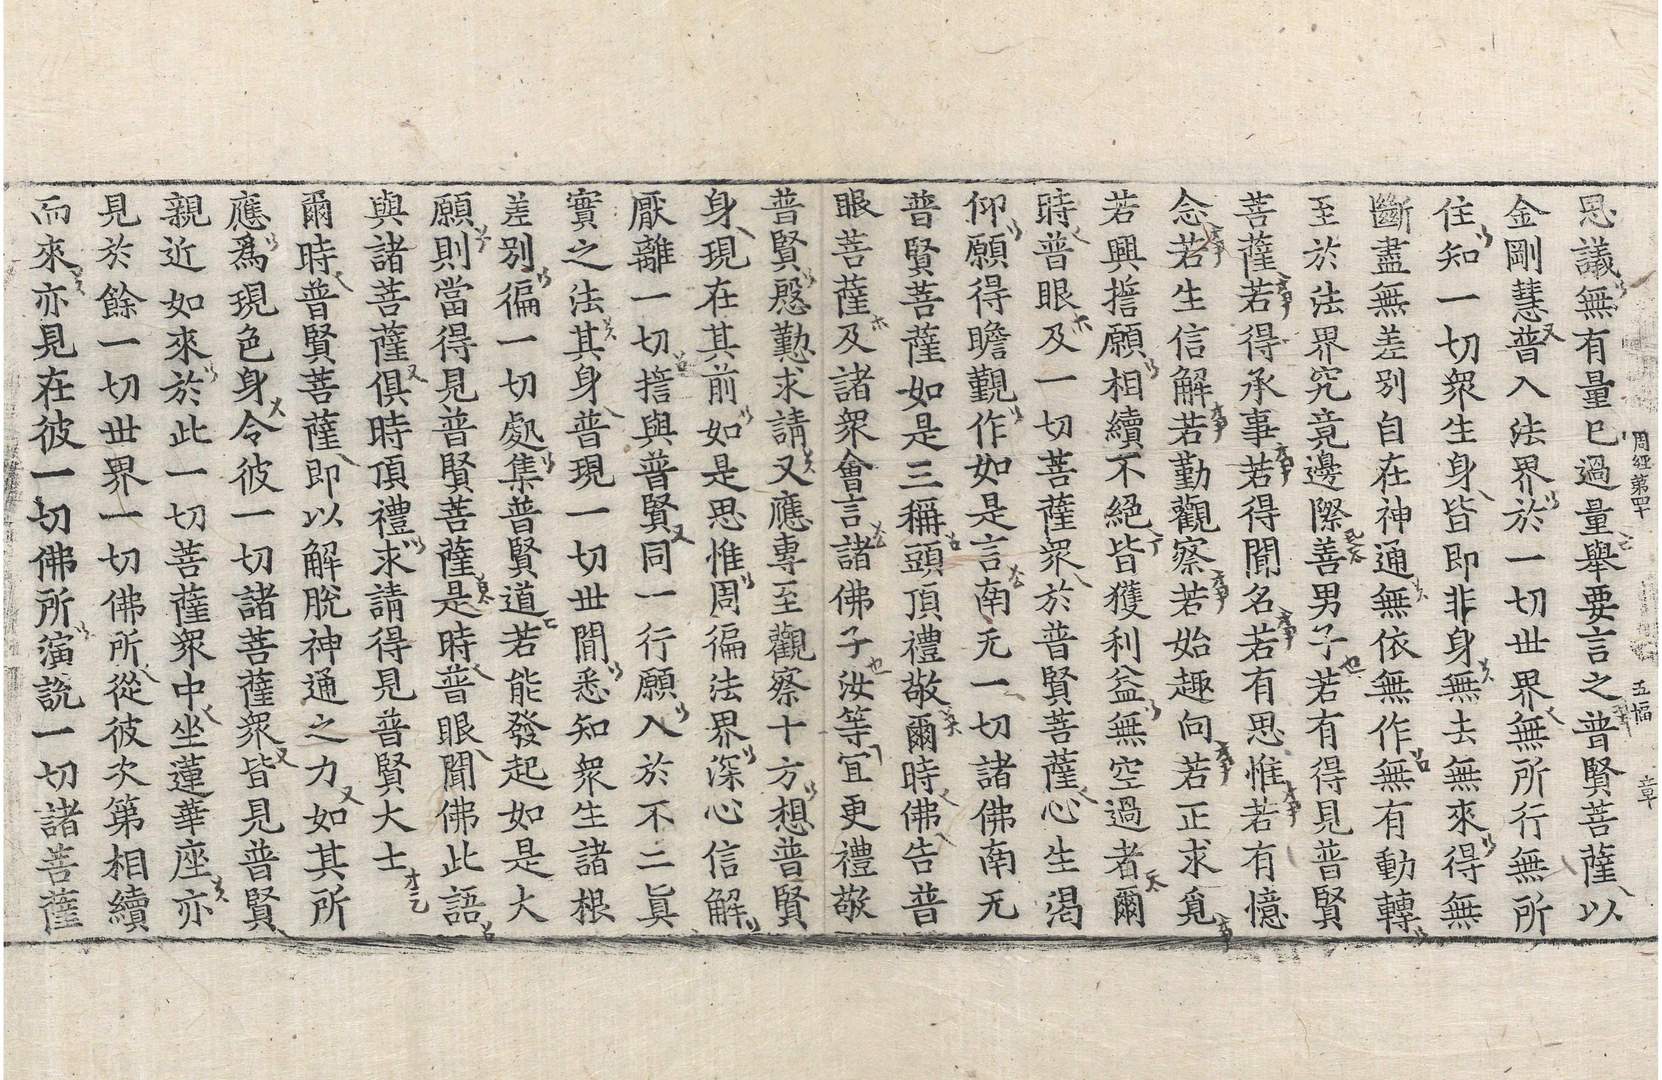 思議無有量已過量舉要言之普賢菩薩以
金剛慧普入法界於一切世界無所行無所
住知一切衆生身皆即非身無去無來得無
斷盡無差別自在神通無依無作無有動轉
至於法界究竟邊際善男子若有得見普賢
菩薩若得承事若得聞名若有思惟若有憶
念若生信解若勤觀察若始趣向若正求覓
若興誓願相續不絕皆獲利益無空過者爾
時普眼及一切菩薩衆於普賢菩薩心生渴
仰願得瞻覲作如是言南无一切諸佛南无
普賢菩薩如是三稱頭頂禮敬爾時佛告普
眼菩薩及諸衆會言諸佛子汝等宜更禮敬
普賢慇懃求請又應專至觀察十方想普賢
身現在其前如是思惟周徧法界深心信解
厭離一切誓與普賢同一行願入於不二眞
實之法其身普現一切世間悉知衆生諸根
差別徧一切處集普賢道若能發起如是大
願則當得見普賢菩薩是時普眼聞佛此語
與諸菩薩俱時頂禮求請得見普賢大士
爾時普賢菩薩即以解脫神通之力如其所
應爲現色身令彼一切諸菩薩衆皆見普賢
親近如來於此一切菩薩衆中坐蓮華座亦
見於餘一切世界一切佛所從彼次第相續
而來亦見在彼一切佛所演說一切諸菩薩
周經第四十 五幅 章